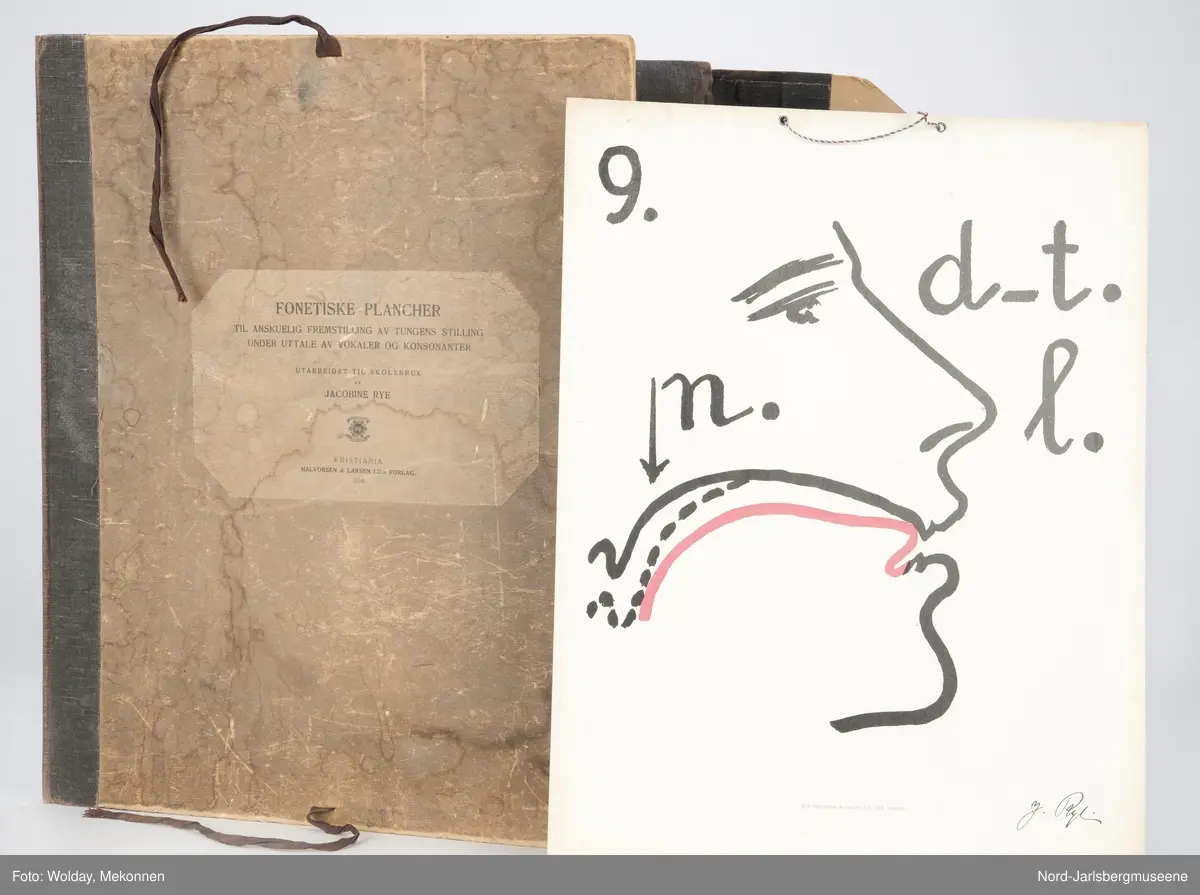 FONETISKE PLANCHER
TIL ANSKUELIG FREMSTILLING AV TUNGENS STILLING
UNDER UTTALE AV VOKALER OG KONSONANTER
UTARBEIDET TIL SKOLEBRUK
AV
JACOBINE RYE
KRISTIANIA
HALVORSEN & LARSEN LTD. FORLAG.
9.
d–t.
l.
n.
J. Rye.
Foto: Wolday, Mekonnen
Nord-Jarlsbergmuseene